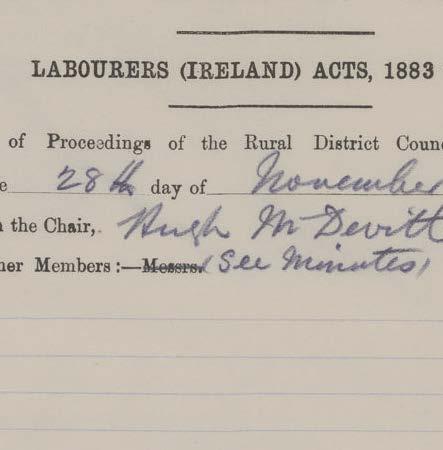 LABOURERS (IRELAND) ACTS, 1883
of Proceedings of the Rural District Counc
e 28th day of November
n the Chair, Hugh McDevitt
her Members:—Messrs. (See Minutes)